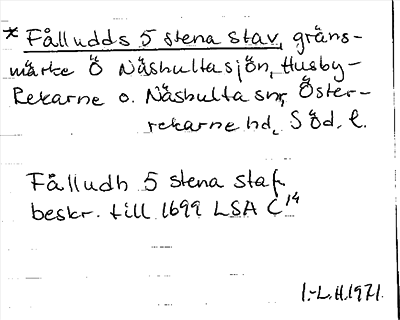 * Fålludds 5 stena stav, gräns-
märke Ö Näshultasjön, Husby-
Rekarne o. Näshulta snr, Öster-
rekarne hd, Söd. l.
Fålludh 5 stena staf
beskr. till 1699 LSA C14
I.-L.H.1971.